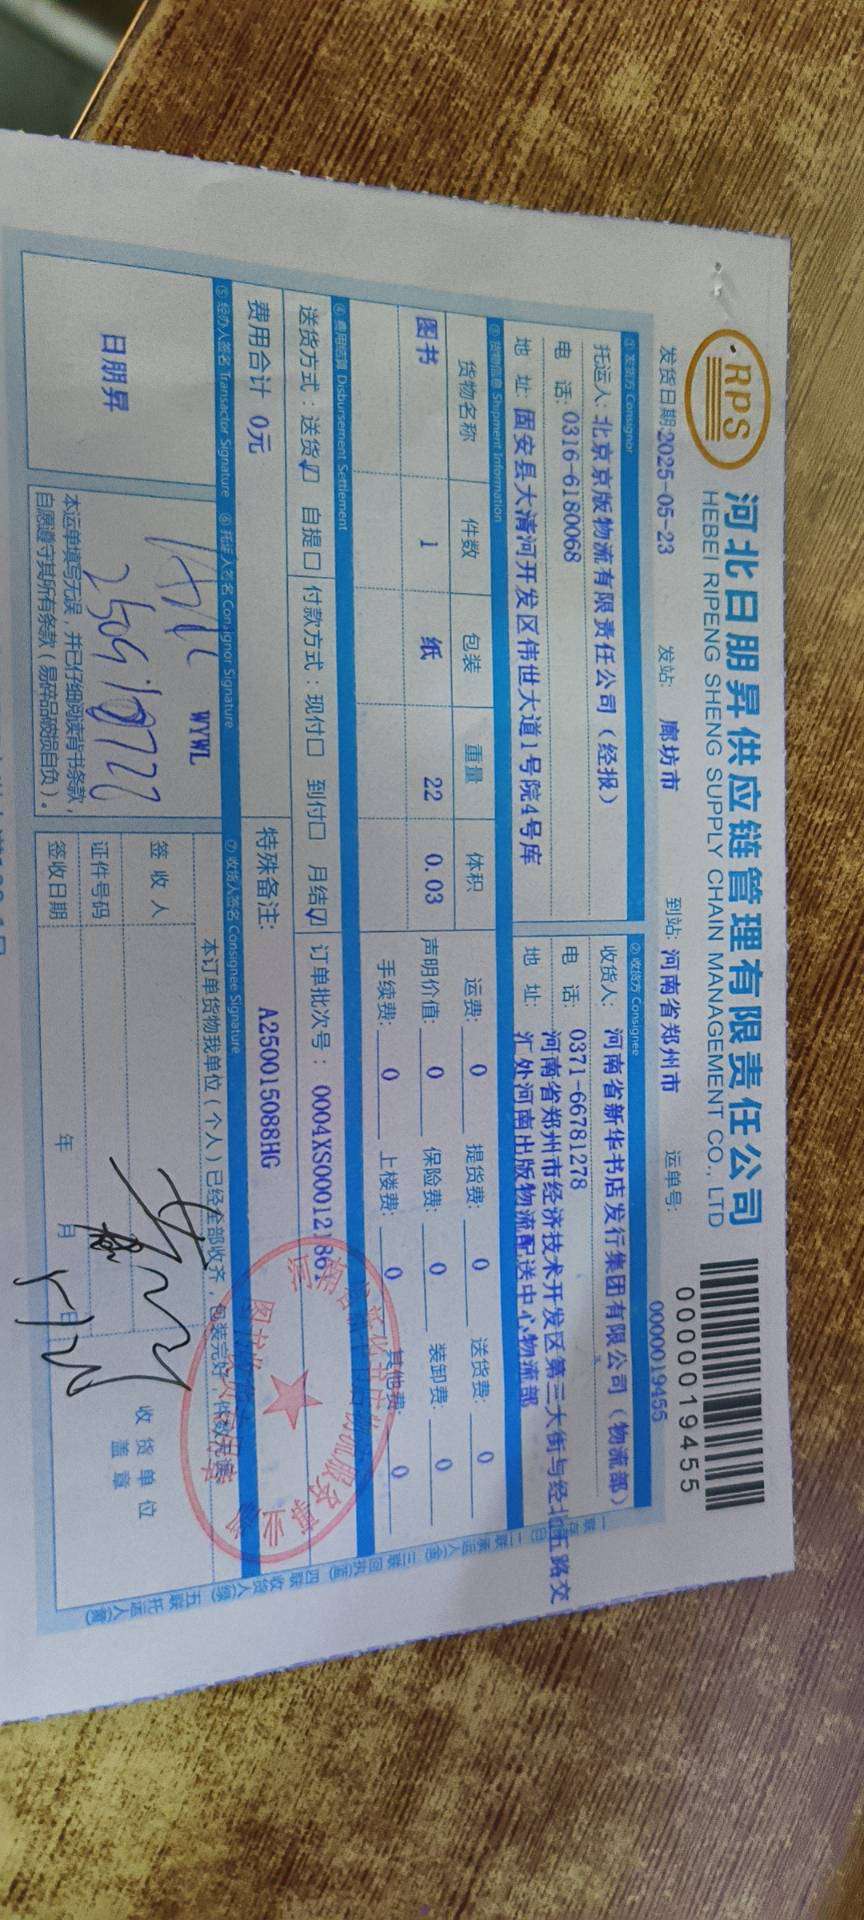 RPS
河北日朋昇供应链管理有限责任公司
HEBEI RIPENG SHENG SUPPLY CHAIN MANAGEMENT CO., LTD
0000019455
发货日期:2025-05-23 发站: 廊坊市 到站: 河南省郑州市 运单号: 0000019455
① 发货方 Consignor
托运人: 北京京版物流有限责任公司（经报）
电 话: 0316-6180068
地 址: 固安县大清河开发区伟世大道1号院4号库
② 收货方 Consignee
收货人: 河南省新华书店发行集团有限公司（物流部）
电 话: 0371-66781278
地 址: 河南省郑州市经济技术开发区第三大街与经北五路交
汇处河南出版物流配送中心物流部
③ 货物信息 Shipment Information
货物名称 件数 包装 重量 体积
图书 1 纸 22 0.03
运费: 0 提货费: 0 送货费: 0
声明价值: 0 保险费: 0 装卸费: 0
手续费: 0 上楼费: 0 其他费: 0
④ 费用结算 Disbursement Settlement
送货方式：送货☑ 自提□ 付款方式：现付□ 到付□ 月结☑ 订单批次号： 0004XS000121861
费用合计 0元 特殊备注: A250015088HG
⑤ 经办人签名 Transactor Signature ⑥ 托运人签名 Consignor Signature ⑦ 收货人签名 Consignee Signature
日朋昇
WYWL
本运单填写无误，并已仔细阅读背书条款，
自愿遵守其所有条款（易碎品破损自负）。
本订单货物我单位（个人）已经全部收齐，包装完好，件数无误
签 收 人
证件号码
签收日期 年 月 日
收货单位
盖 章